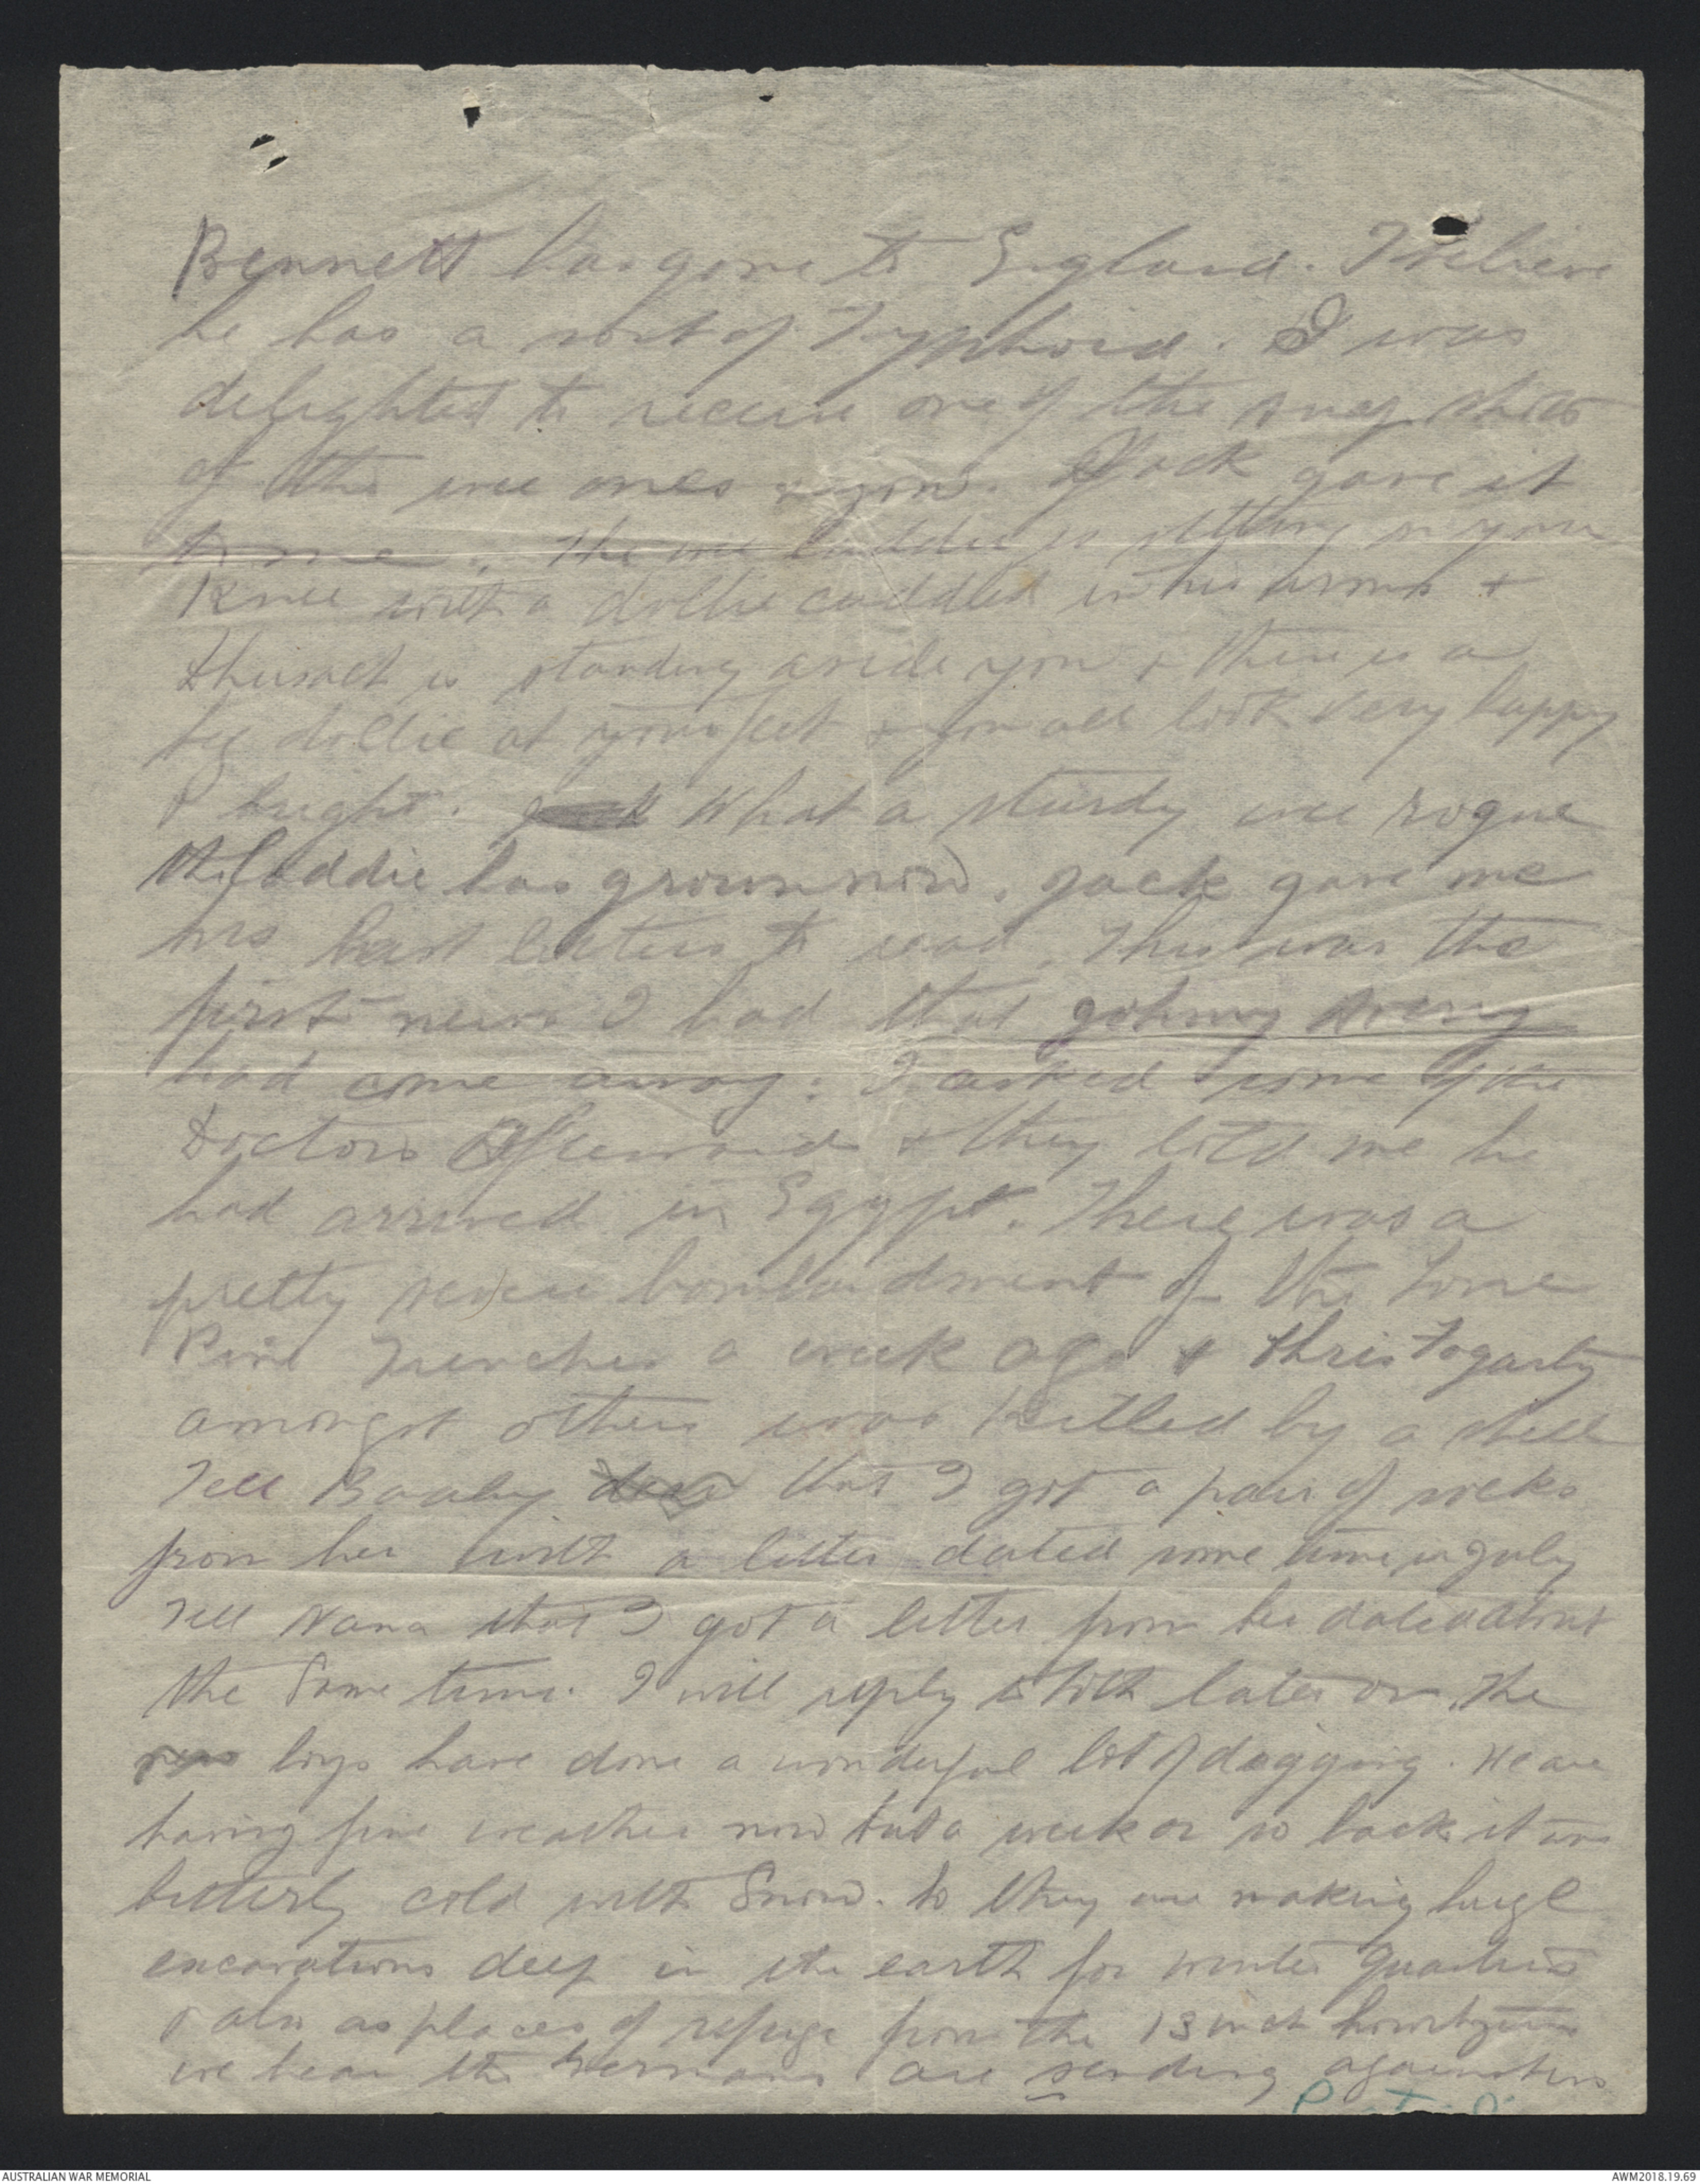 Bennett has gone to England. I believe
he has a sort of Typhoid. I was
delighted to receive one of the snap shots
of the wee ones & you. Jack gave it
to me. The wee laddie is sitting on your
Knee with a dollie cuddled in his arms +
is standing aside you + there is a
big dollie at your feet + you all look very happy
& bright. What a sturdy wee rogue
the laddie has grown now. Jack gave me
his last letters to read. This was the
first news I had that Johnny
had come away. I asked some of the
Doctors afterwards + they told me he
had arrived in Egypt. There was a
pretty severe bombardment of the Lone
Pine Trenches a week ago + Chris Fogarty
amongst others was killed by a shell
Tell that I got a pair of socks
from her with a letter dated some time in July
Tell Nana that I got a letter from her dated about
the same time. I will reply to both later on. The
boys have done a wonderful lot of digging. We are
having fine weather now but a week or so back it was
bitterly cold with snow. So they are making huge
excavations deep in the earth for winter quarters
& also as places of refuge from the 13 inch howitzers
we hear the Germans are sending against us
AUSTRALIAN WAR MEMORIAL
AWM2018.19.69